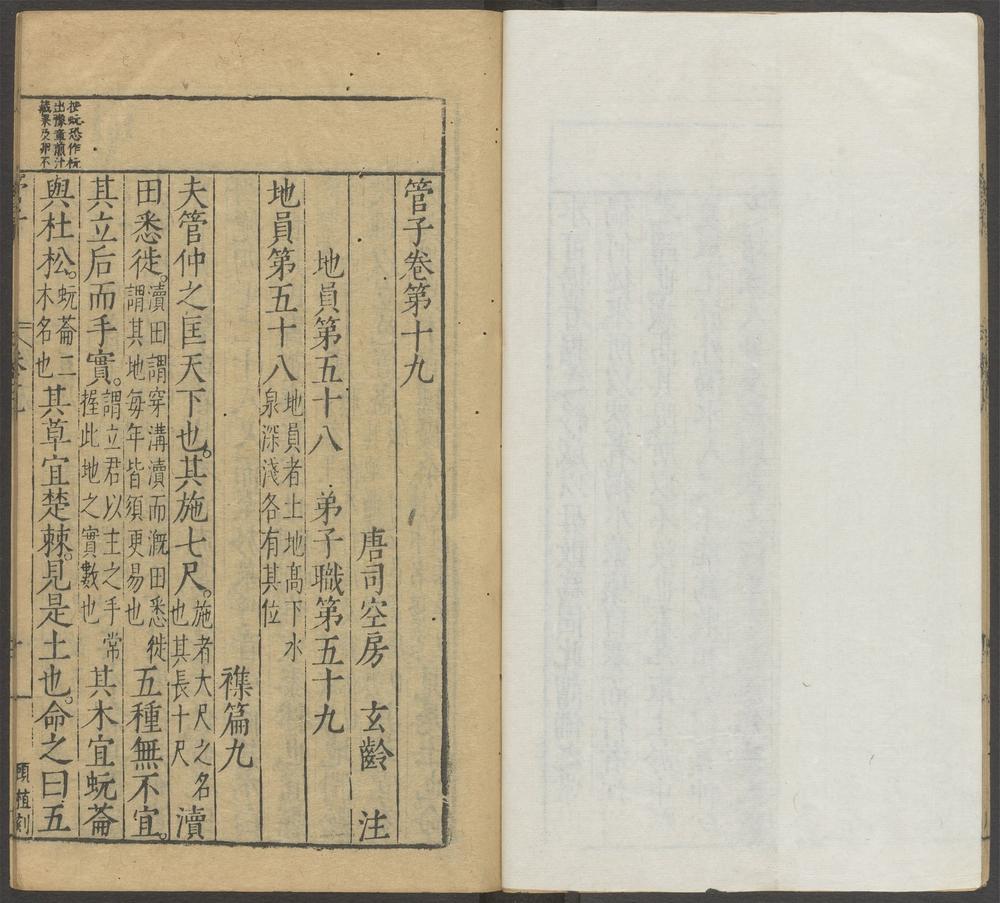 管子卷第十九
唐司空房 玄齡 注
地員第五十八 弟子職第五十九
地員第五十八 地員者土地高下水泉深淺各有其位
襍篇九
夫管仲之匡天下也其施七尺。施者大尺之名也其長十尺 瀆
田悉徙。瀆田謂穿溝瀆而溉田悉徙謂其地每年皆須更易也 五種無不宜。
其立后而手實。謂立君以主之手常握此地之實數也 其木宜蚖菕
與杜松。蚖菕二木名也 其草宜楚棘。見是土也。命之曰五
按蚖恐作杬
出豫章煎汁
藏果及卵不
顧植刻